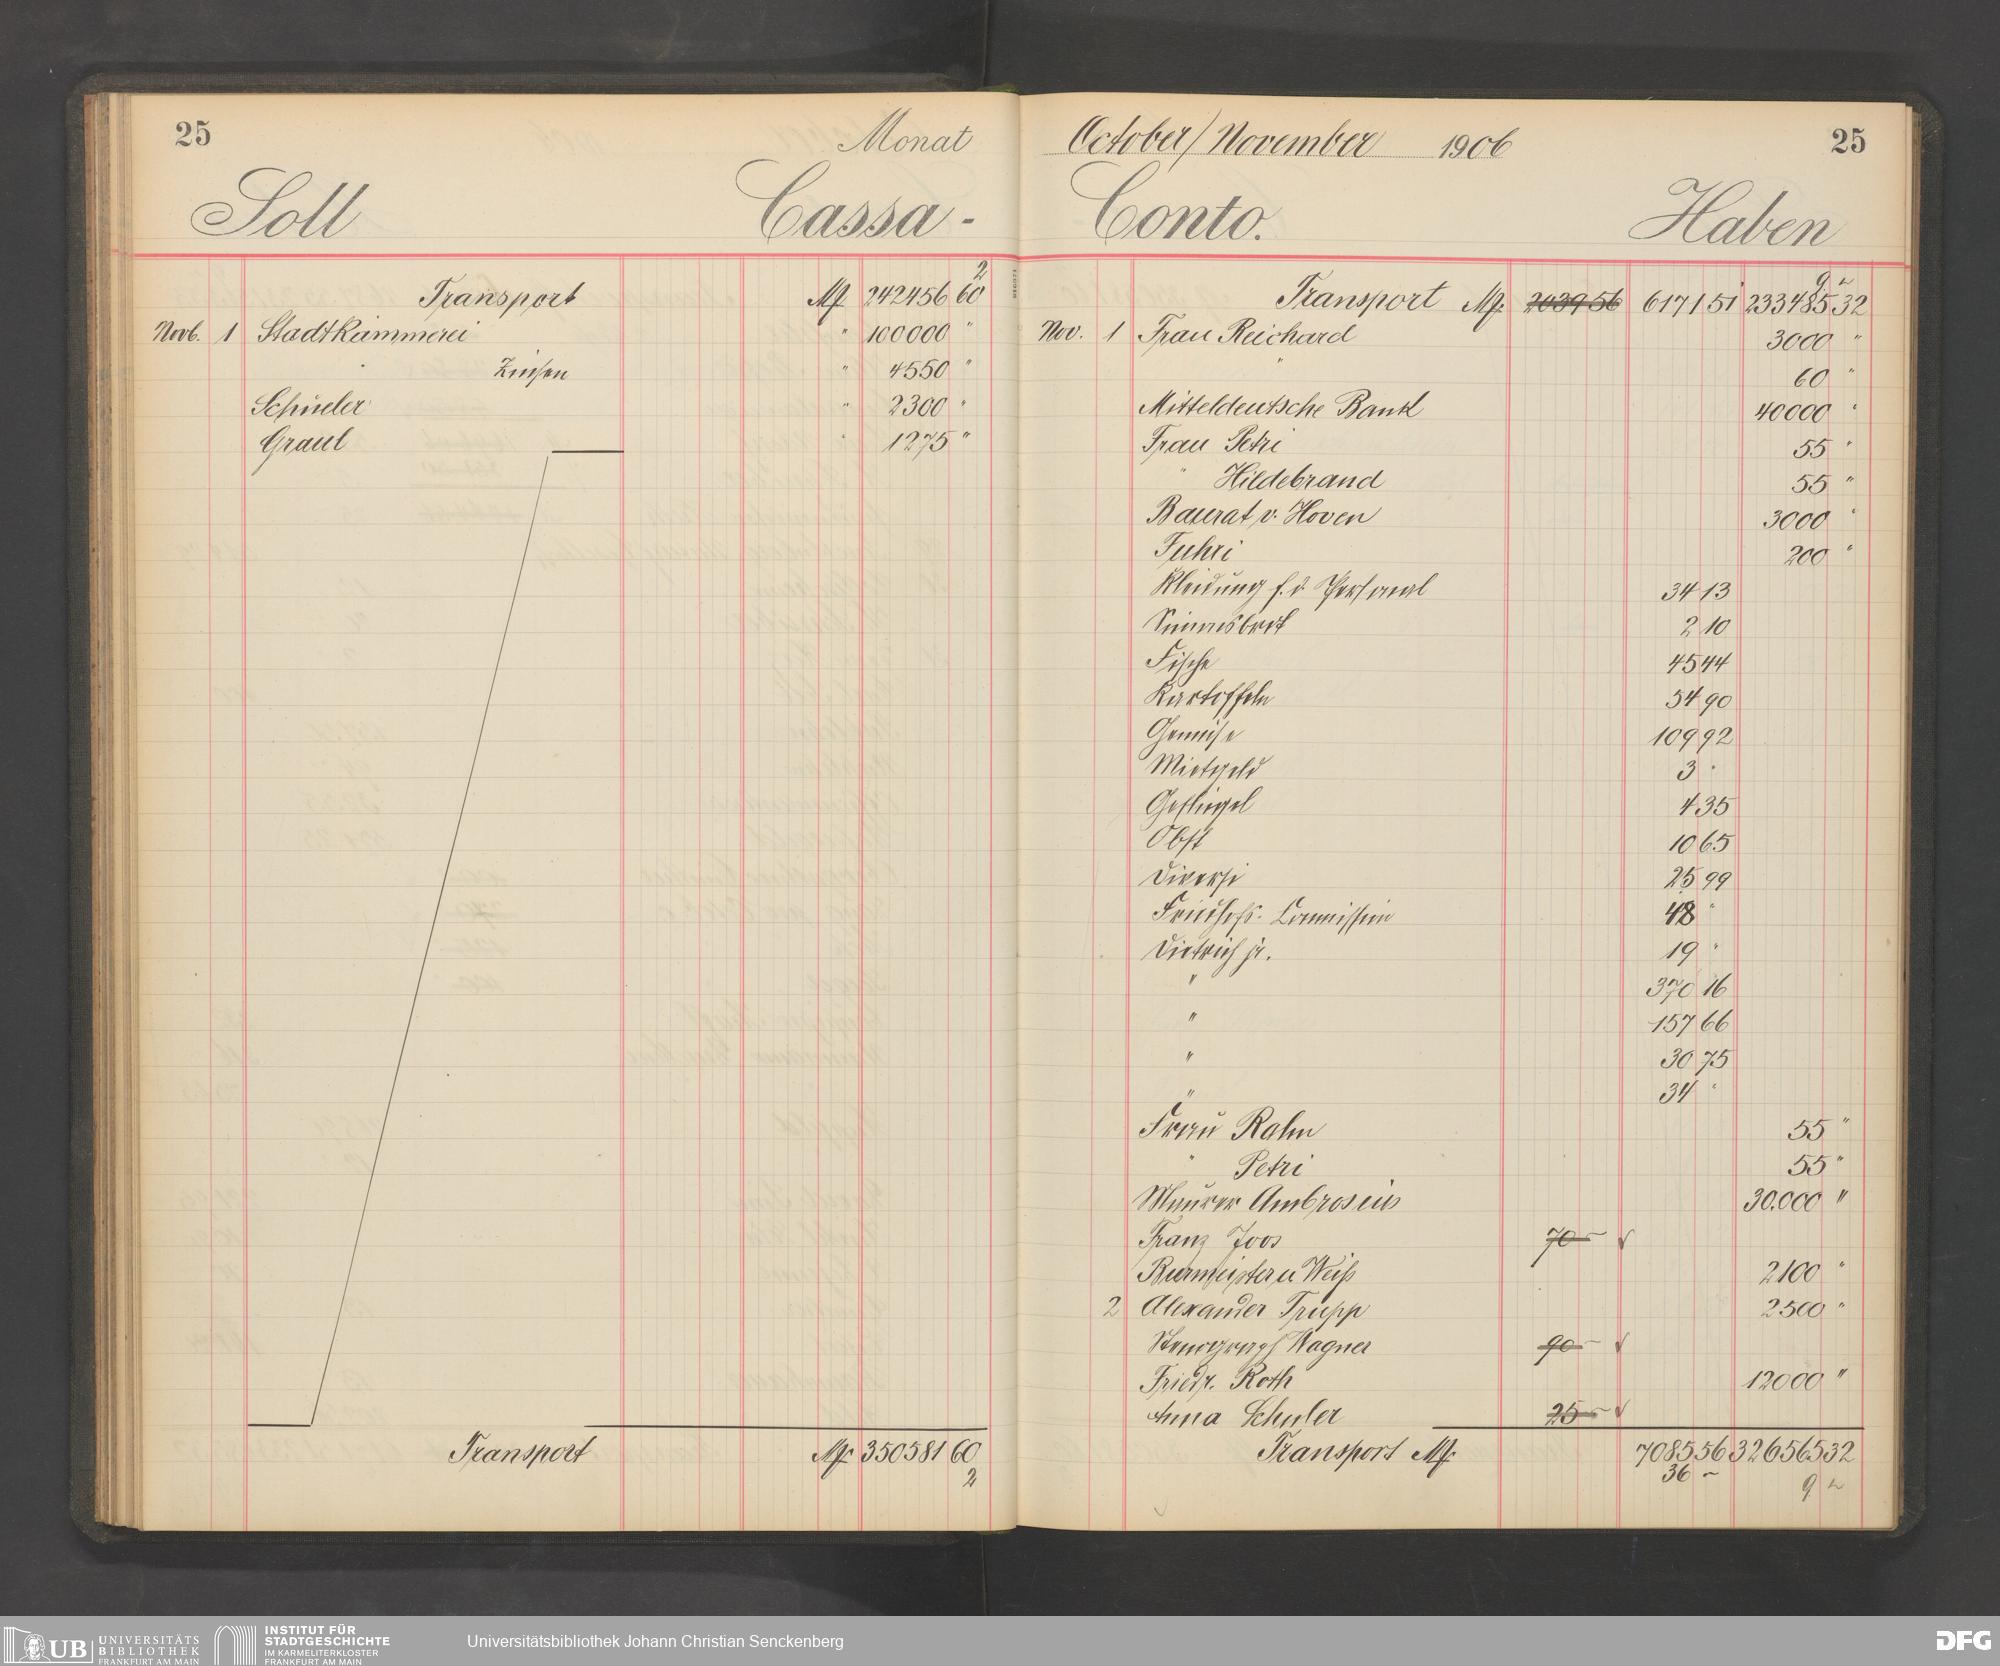 25
Monat
Soll Cassa-
2
Transport M 242456 60
Novb. 1 Stadtkämmerei " 100000 "
" Zinsen " 4550 "
Schüeler " 2300 "
Graul " 1275 "
Transport M 350581 60
2
October/November 1906 25
Conto. Haben
9 2
Transport M. 2039 56 6171 51 233485 32
Nov. 1 Frau Reichard 3000 "
" 60 "
Mitteldeutsche Bank 40000 "
Frau Petri 55 "
" Hildebrand 55 "
Baurat v. Hoven 3000 "
Fuhri 200 "
Kleidung f. d. Personal 34 13
Simonsbrot 2 10
Fische 45 44
Kartoffeln 54 90
Gemüse 109 92
Mietgeld 3 "
Geflügel 4 35
Obst 10 65
Diverse 25 99
Friedhofs-Commission 48 "
Dietrich jr. 19 "
" 370 16
" 157 66
" 30 75
" 34 "
Frau Rahn 55 "
" Petri 55 "
Maurer Ambrosius 30.000 "
Franz Joos 70 –
Burmeister u Weiß 2100 "
2 Alexander Trupp 2500 "
Stenograph Wagner 90 –
Friedr. Roth 12000 "
Anna Schuler 25 –
Transport M. 7085 56 326565 32
36 – 9
UB UNIVERSITÄTS
BIBLIOTHEK
FRANKFURT AM MAIN
INSTITUT FÜR
STADTGESCHICHTE
IM KARMELITERKLOSTER
FRANKFURT AM MAIN
Universitätsbibliothek Johann Christian Senckenberg
DFG